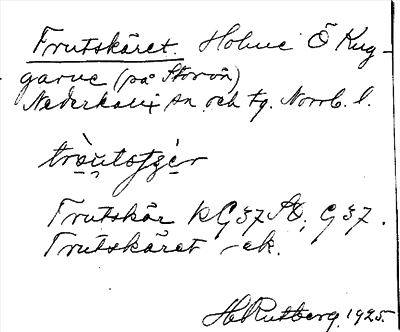 Frutskäret. Holme Ö Kug-
garne (på Storön)
Nederkalix sn och tg. Norrb. l.
Frutskär KG 37 AÖ, G 37.
Frutskäret -ek.
H Rutberg. 1925.